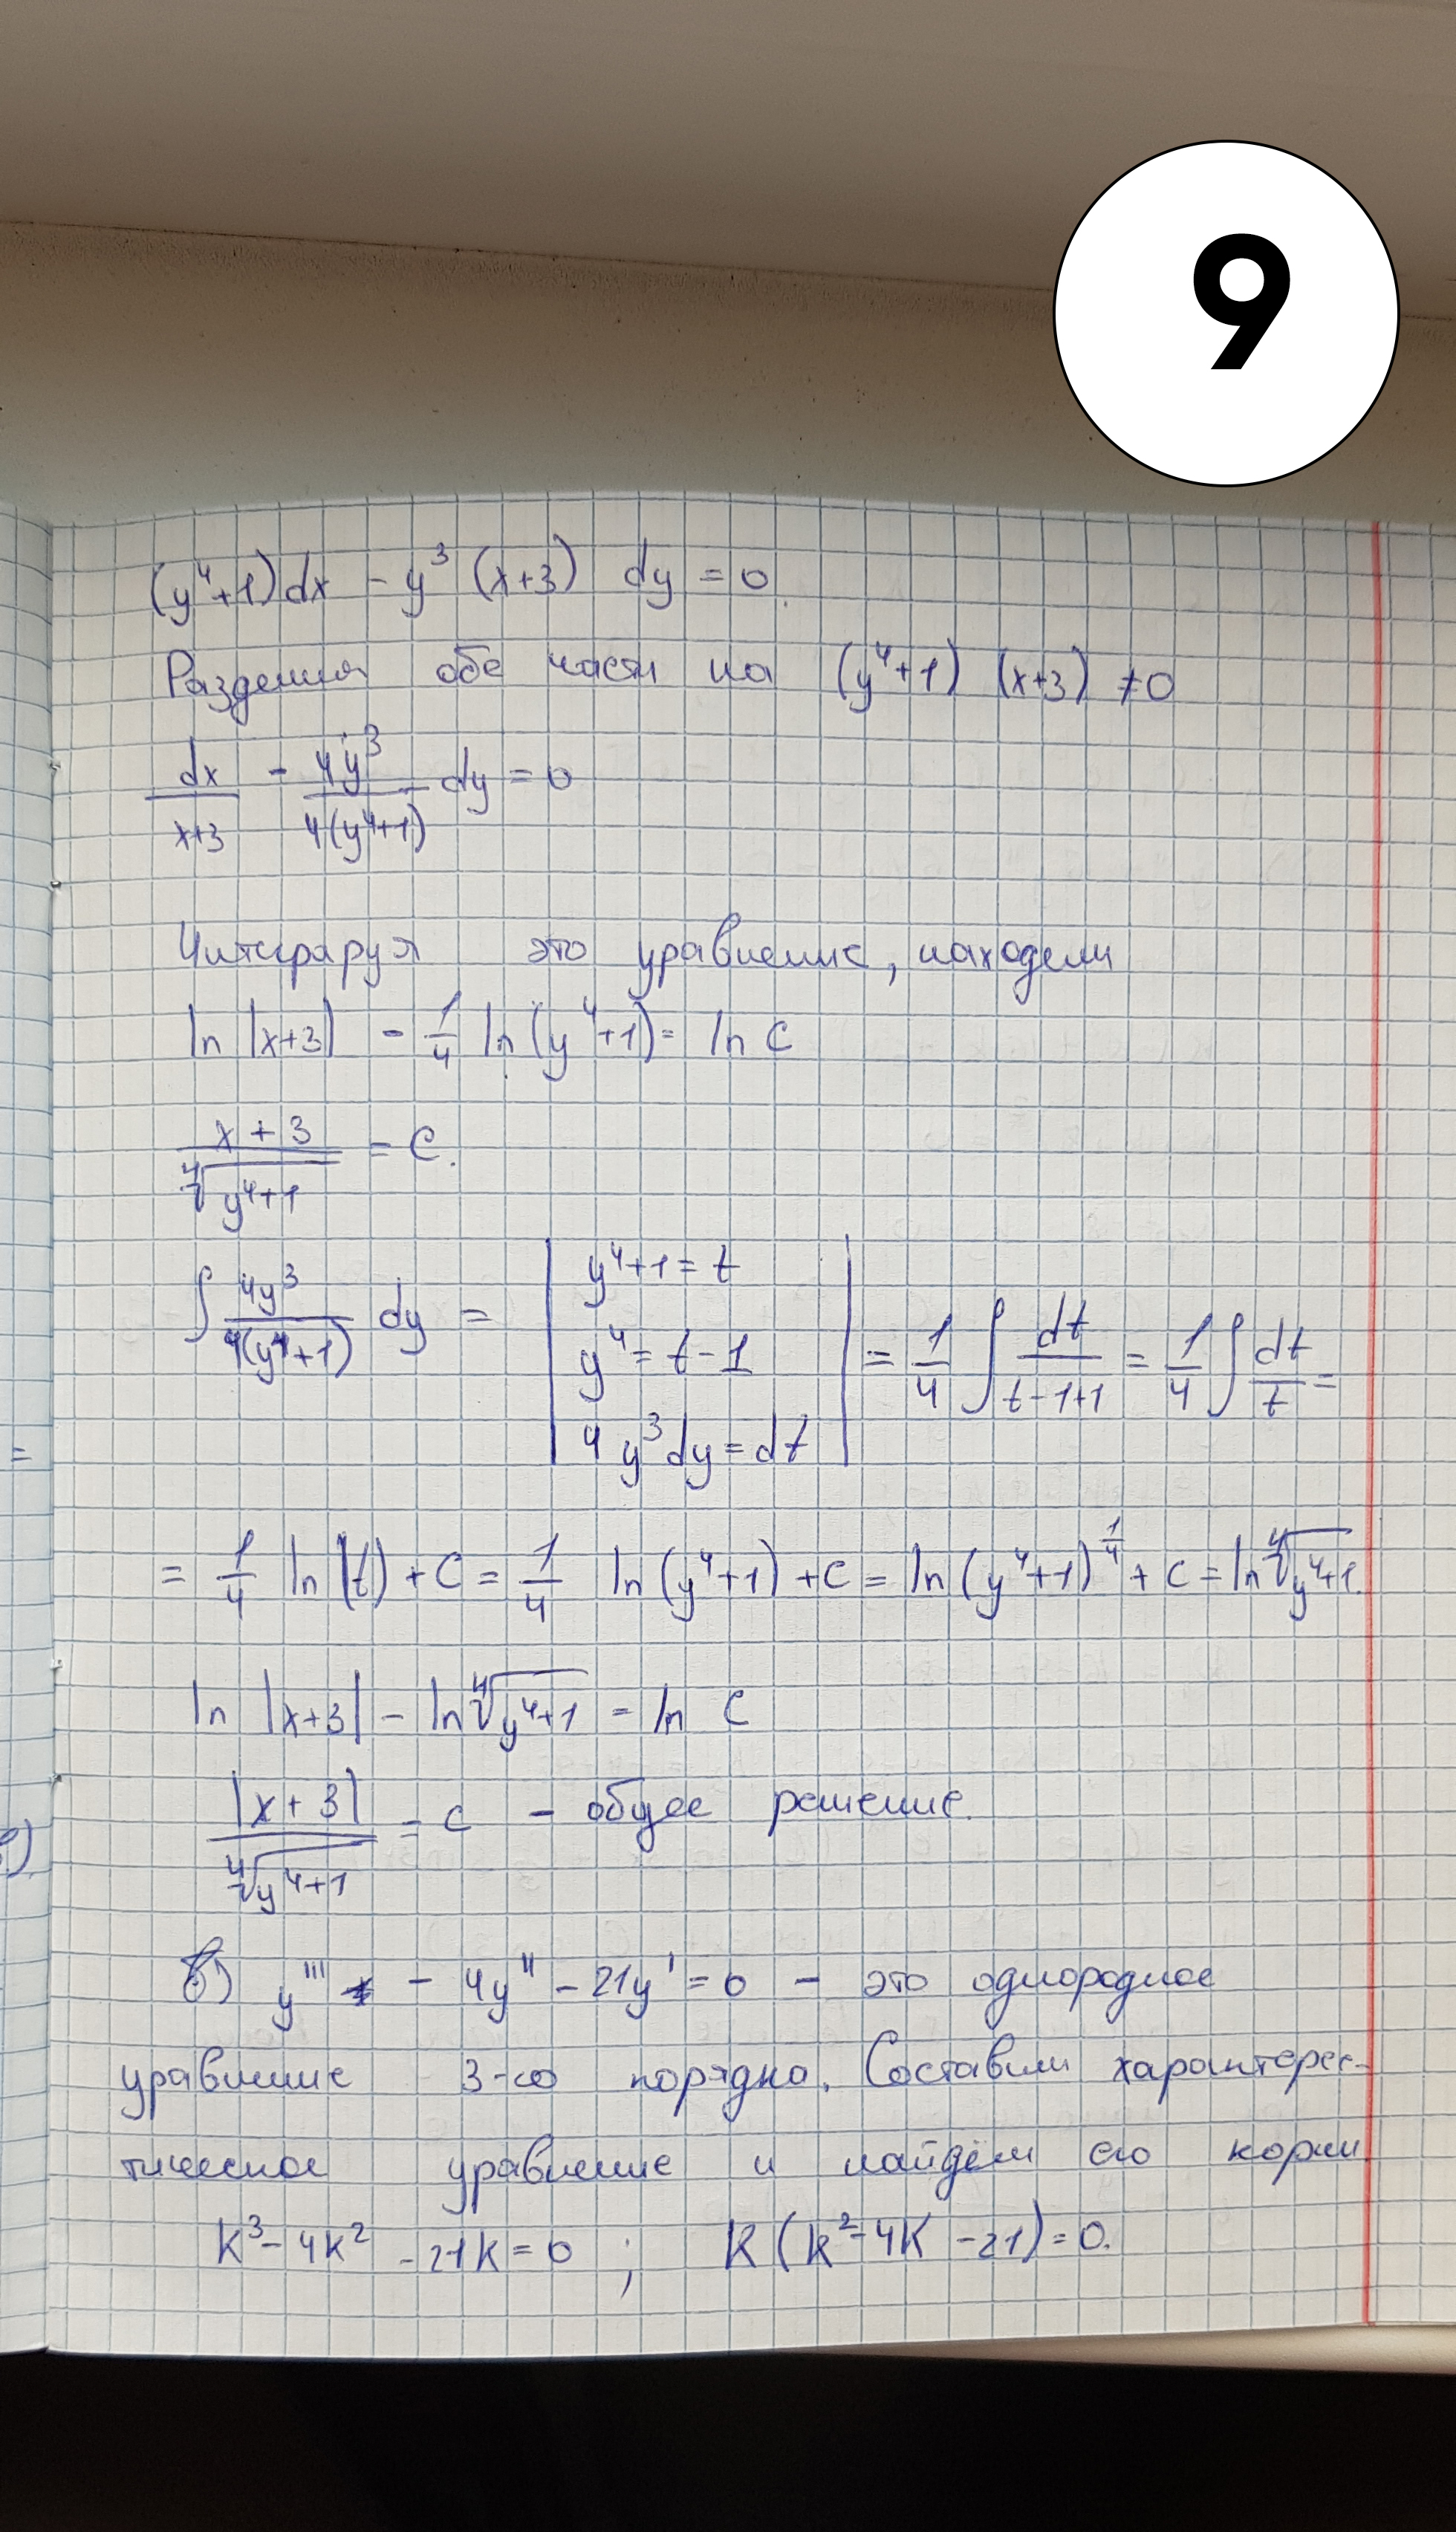 9
(y⁴+1)dx - y³ (x+3) dy = 0.
Разделим обе части на (y⁴+1) (x+3) ≠ 0
dx/(x+3) - 4y³/(4(y⁴+1)) dy = 0
Интеграруя это уравнение, находим
ln |x+3| - 1/4 ln (y⁴+1) = ln C
(x+3)/⁴√(y⁴+1) = C.
∫ 4y³/(4(y⁴+1)) dy = | y⁴+1 = t
y⁴ = t-1
4y³dy = dt | = 1/4 ∫ dt/(t-1+1) = 1/4 ∫ dt/t =
= 1/4 ln |t| + C = 1/4 ln (y⁴+1) + C = ln (y⁴+1)^(1/4) + C = ln ⁴√(y⁴+1).
ln |x+3| - ln ⁴√(y⁴+1) = ln C
|x+3|/⁴√(y⁴+1) = C - общее решение.
б) y''' - 4y'' - 21y' = 0 - это однородное
уравнение 3-го порядка. Составим характерес-
тическое уравнение и найдём его корни
k³ - 4k² - 21k = 0 ; k(k² - 4k - 21) = 0.
=